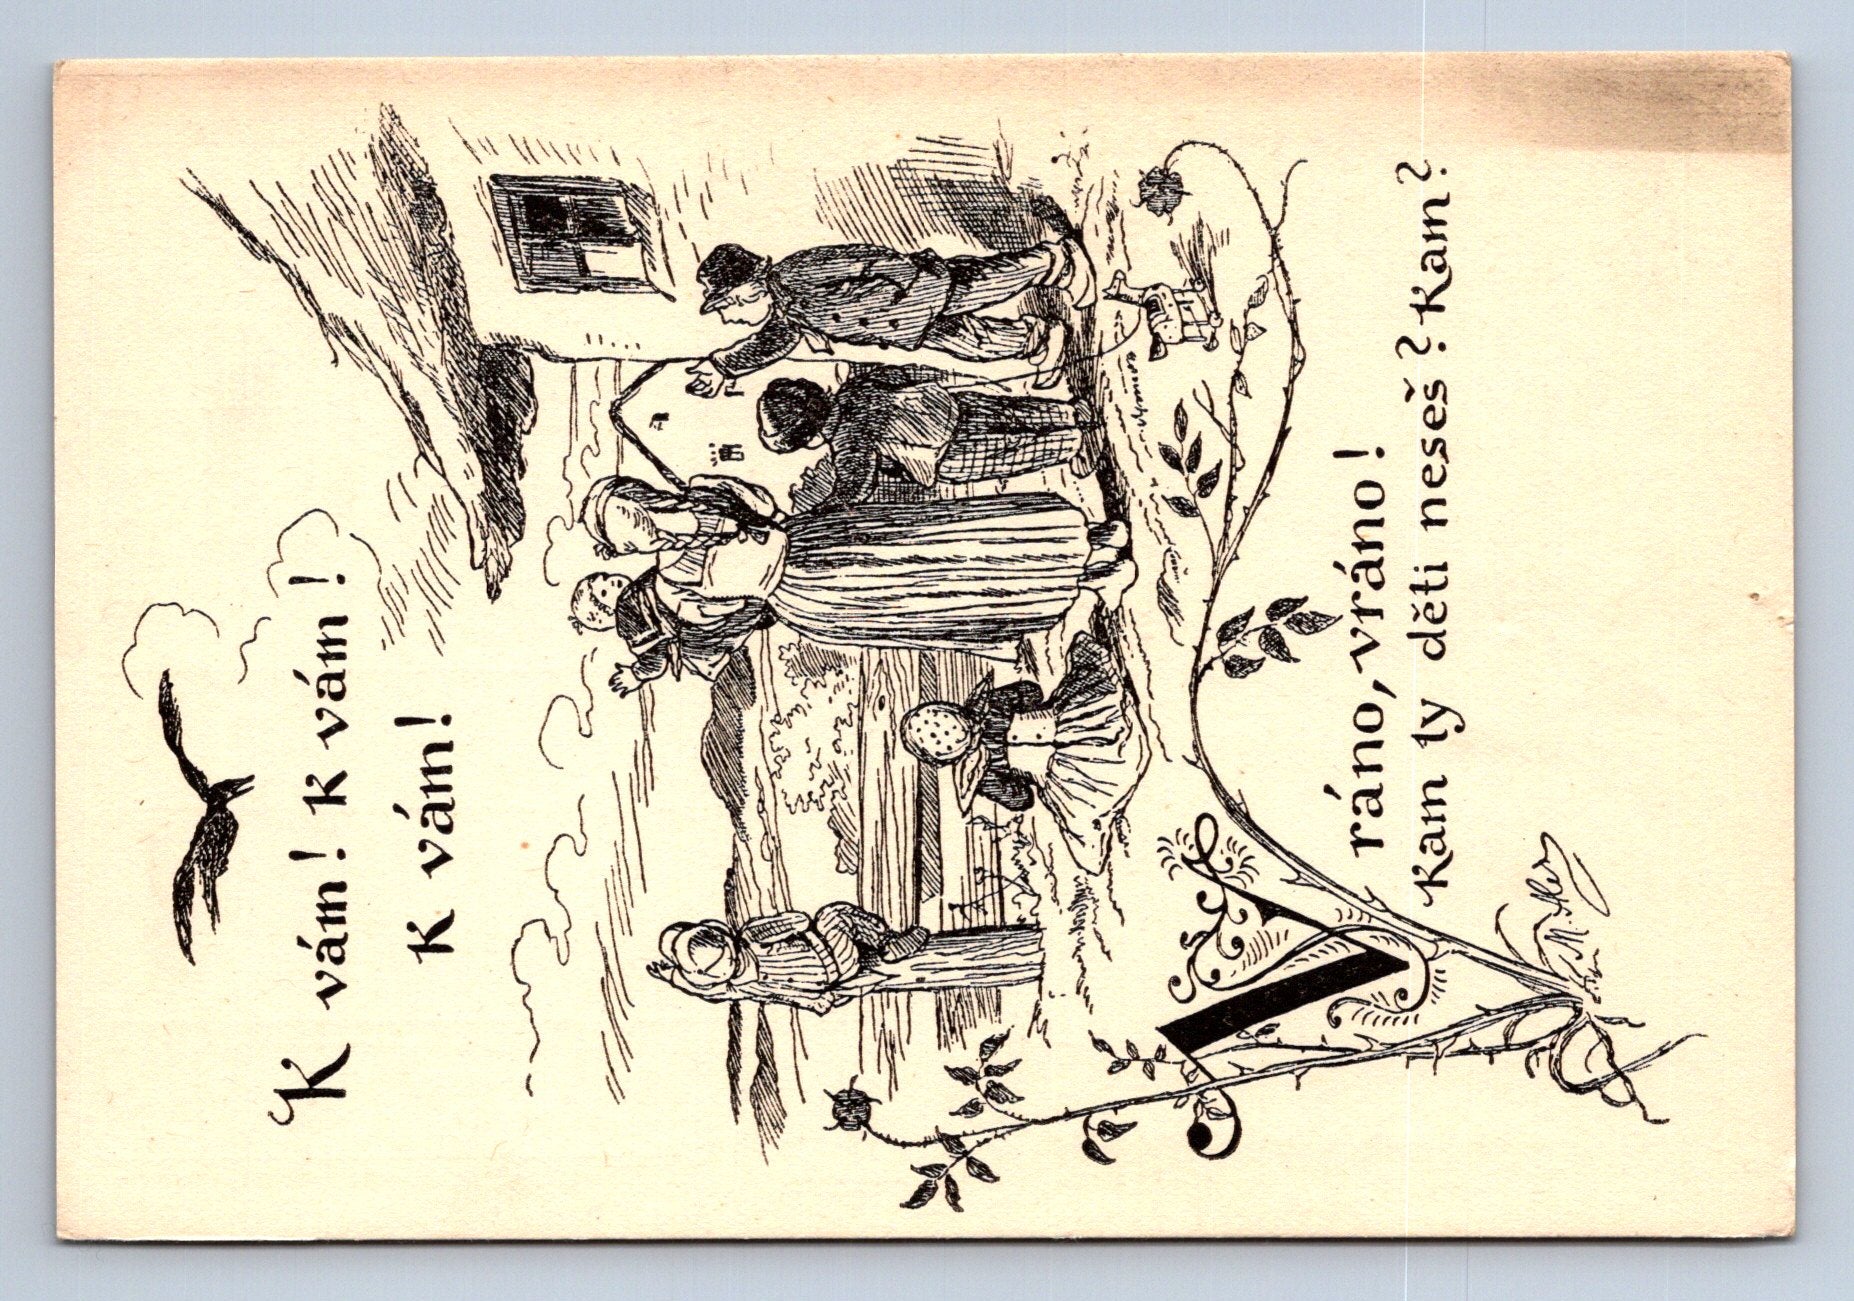 K vám! K vám!
K vám!
Vráno, vráno!
Kam ty děti neseš? Kam?
M. Aleš